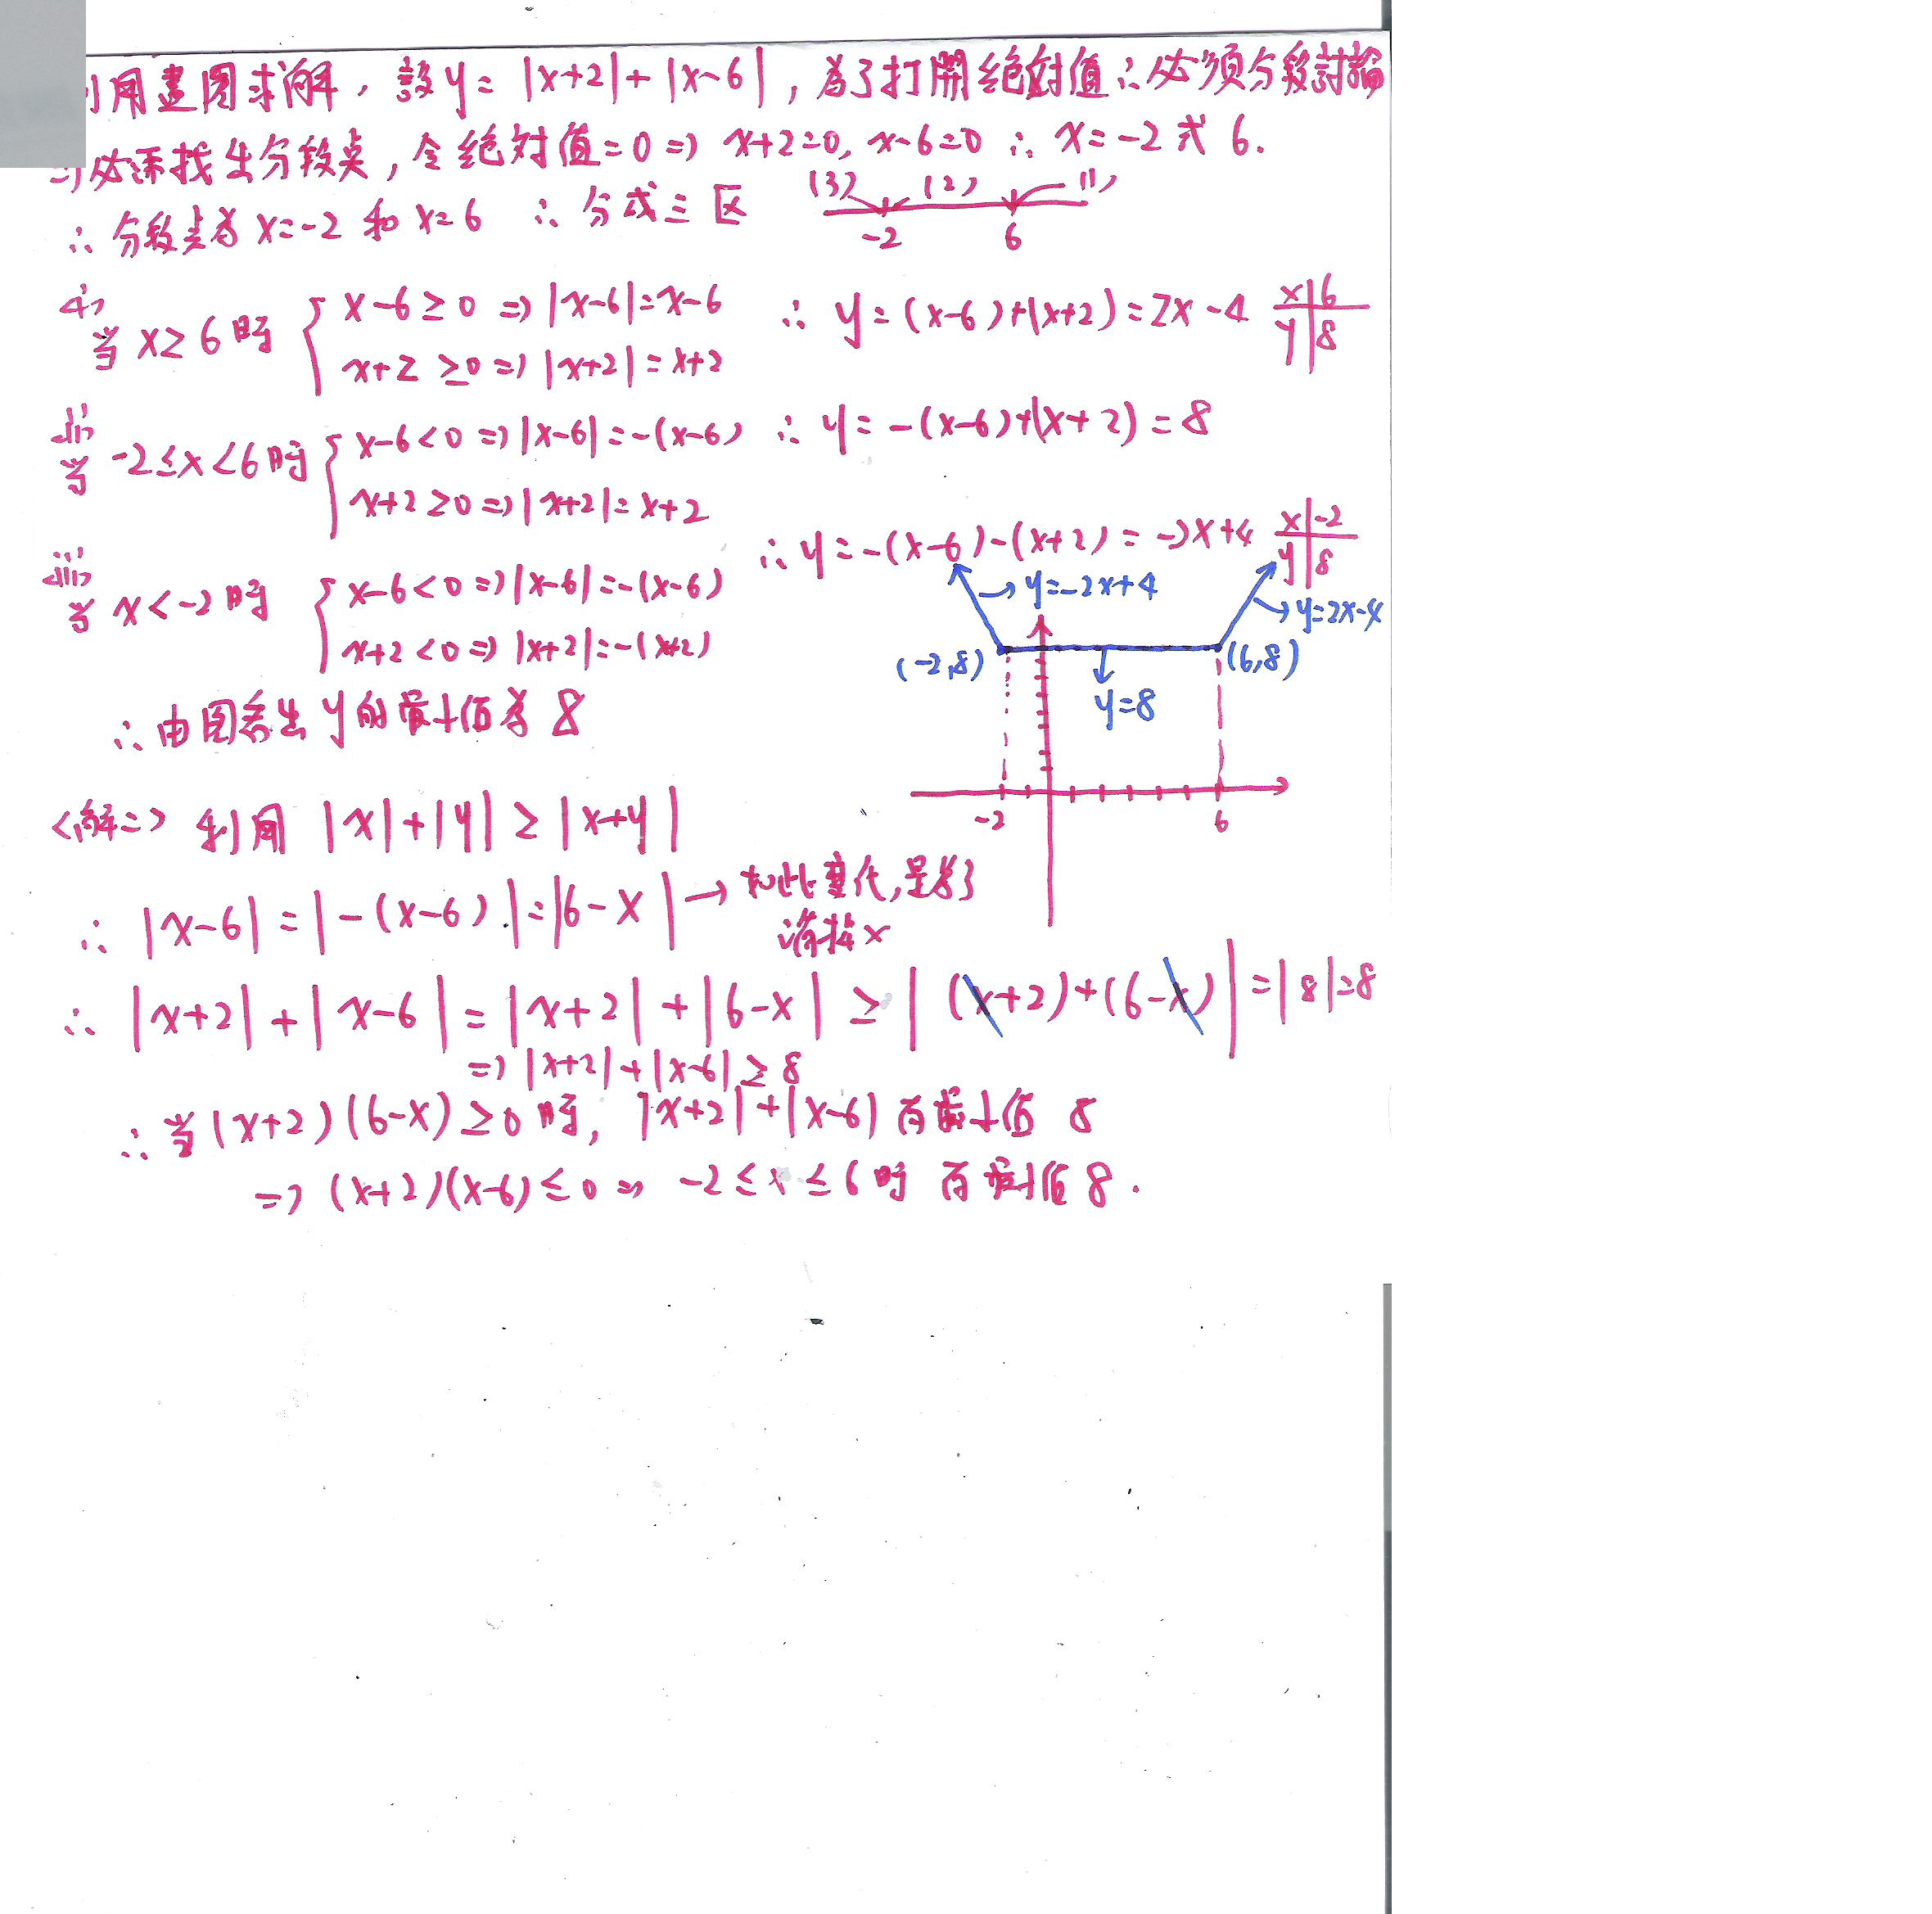 利用畫圖求解，設y=|x+2|+|x-6|，為了打開絕對值∴必須分段討論
⇒必須找出分段點，令絕對值=0⇒ x+2=0, x-6=0 ∴ x=-2 或 6.
∴ 分段點為 x=-2 和 x=6 ∴ 分成三区
(3) (2) (1)
-2 6
<i>
當 x≥6時 { x-6≥0 ⇒|x-6|=x-6
x+2≥0⇒|x+2|=x+2
∴ y=(x-6)+(x+2)=2x-4
x|6
y|8
<ii>
當 -2≤x<6時 { x-6<0⇒|x-6|=-(x-6)
x+2≥0⇒|x+2|=x+2
∴ y=-(x-6)+(x+2)=8
<iii>
當 x<-2時 { x-6<0⇒|x-6|=-(x-6)
x+2<0⇒|x+2|=-(x+2)
∴ y=-(x-6)-(x+2)=-2x+4
x|-2
y|8
→y=-2x+4
→y=2x-4
(-2,8) (6,8)
y=8
-2 6
∴由图看出 y的最小值為 8
<解二> 利用 |x|+|y|≥|x+y|
∴ |x-6|=|-(x-6)|=|6-x| → 如此變化,是為了
消掉x
∴ |x+2|+|x-6|=|x+2|+|6-x| ≥ |(x+2)+(6-x)|=|8|=8
⇒|x+2|+|x-6|≥8
∴當(x+2)(6-x)≥0時, |x+2|+|x-6|有最小值 8
⇒(x+2)(x-6)≤0⇒ -2≤x≤6時 有最小值 8.